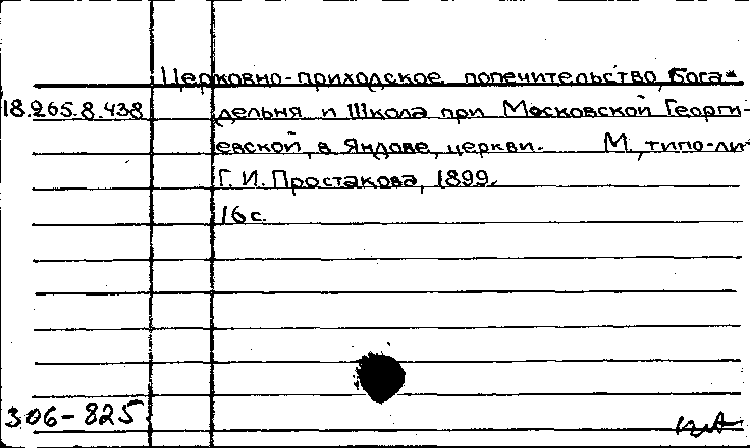 Церковно-приходское попечительство, бога-
18.265.8.438 дельня и Школа при Московской Георги-
евской, в Яндове, церкви. М., типо-лит
Г. И. Простакова, 1899.
16 с.
306-825